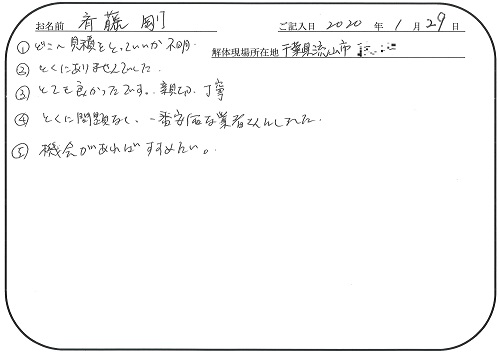 お名前 斉藤 剛 ご記入日 2020 年 1 月 29 日
① どこへ見積をとっていいか不明.
解体現場所在地 千葉県流山市
② とくにありませんでした.
③ とても良かったです。親切、丁寧
④ とくに問題なし、一番安価な業者さんでした.
⑤ 機会があればすすめたい。